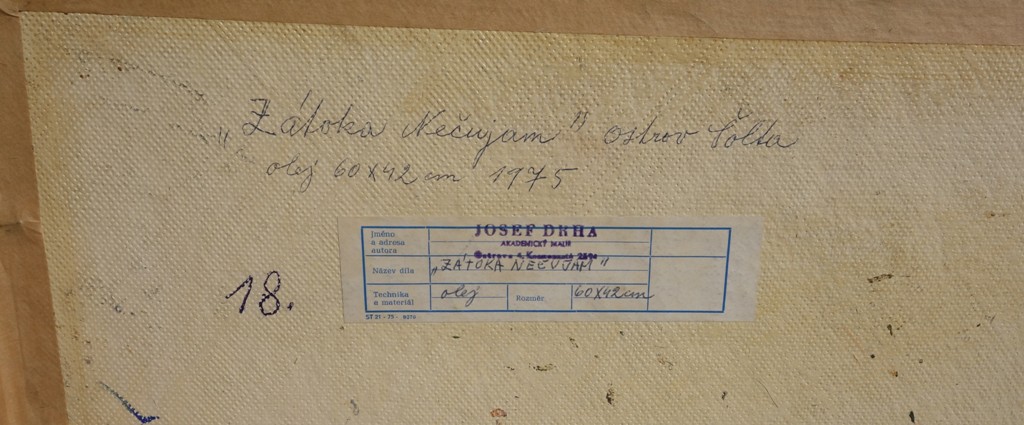 „Zátoka Nečujam" ostrov Šolta
olej 60x42 cm 1975
18.
Jméno
a adresa
autora
JOSEF DRHA
AKADEMICKÝ MALÍŘ
Ostrava
Název díla
„ZÁTOKA NEČUJAM"
Technika
a materiál
olej
Rozměr
60x42cm
ST 21 - 75 -